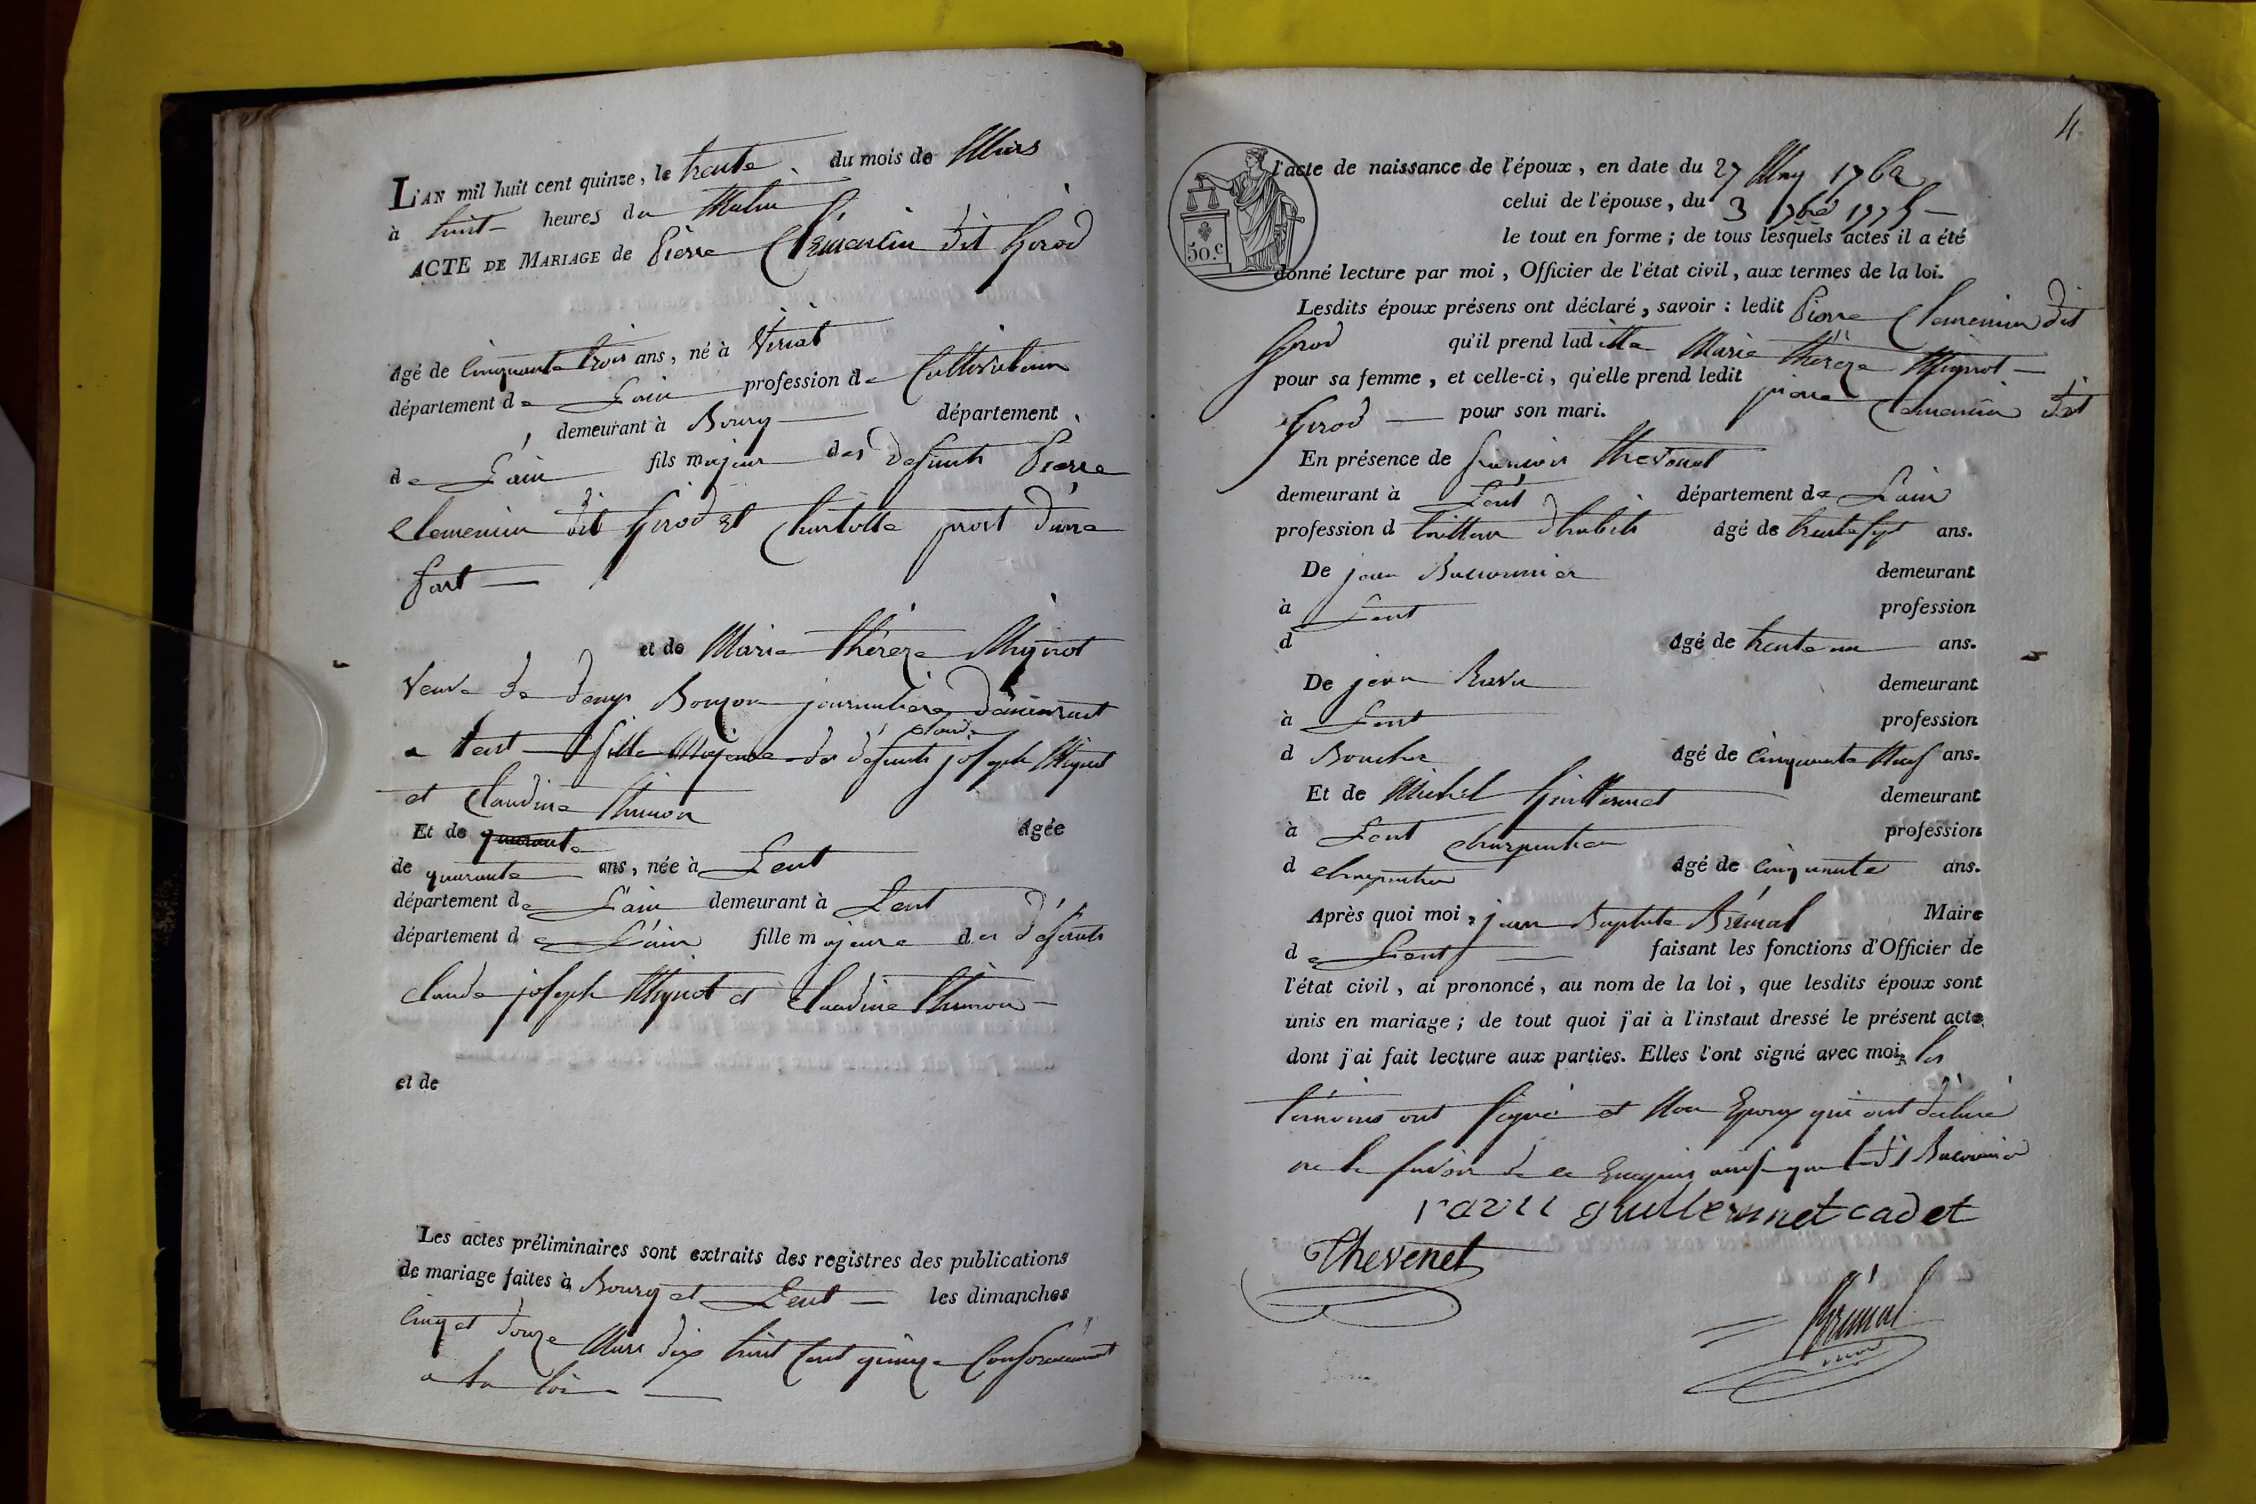 L'AN mil huit cent quinze, le trente du mois de Mars
à huit heures du Matin
ACTE DE MARIAGE de Pierre Clemenein dit Girod
âgé de Cinquante trois ans, né à Viriat
département de L'ain profession de Cultivateur
demeurant à Bourg département
de L'ain fils majeur des defunts Pierre
Clemenein dit Girod et Charlotte prost d'une
part
et de Marie thérèze Mignot
Veuve de denys Bonzon journaliere demeurant
a Lent fille Majeure des défunts claude joseph Mignot
et Claudine thimon
Et de quarante âgée
de quarante ans, née à Lent
département de L'ain demeurant à Lent
département de L'ain fille majeure des défunts
Claude joseph Mignot et Claudine thimon
et de
Les actes préliminaires sont extraits des registres des publications
de mariage faites à Bourg et Lent les dimanches
Cinq et douze Mars dix huit Cent quinze Conformement
a la loi
4
50.c
l'acte de naissance de l'époux, en date du 27 May 1762
celui de l'épouse, du 3 7bre 1775
le tout en forme; de tous lesquels actes il a été
donné lecture par moi, Officier de l'état civil, aux termes de la loi.
Lesdits époux présens ont déclaré, savoir: ledit Pierre Clemenein dit
Girod qu'il prend laditte Marie thérèze Mignot
pour sa femme, et celle-ci, qu'elle prend ledit pierre Clemenein dit
Girod pour son mari.
En présence de françois thevenet
demeurant à Lent département de L'ain
profession d tailleur d'habits âgé de trente sept ans.
De jean Baconnier demeurant
à Lent profession
d âgé de trente un ans.
De jean Ravu demeurant
à Lent profession
d Boucher âgé de Cinquante Neuf ans.
Et de Michel Guillermet demeurant
à Lent charpentier profession
d charpentier âgé de Cinquante ans.
Après quoi moi, jean Baptiste Brémal Maire
de Lent faisant les fonctions d'Officier de
l'état civil, ai prononcé, au nom de la loi, que lesdits époux sont
unis en mariage; de tout quoi j'ai à l'instaut dressé le présent acte
dont j'ai fait lecture aux parties. Elles l'ont signé avec moi, les
témoins ont signé et Non Epoux qui ont déclaré
ne le savoir de ce Enquis ainsi que ledit Baconnier
ravu guillermet cadet
Thevenet
Brémal